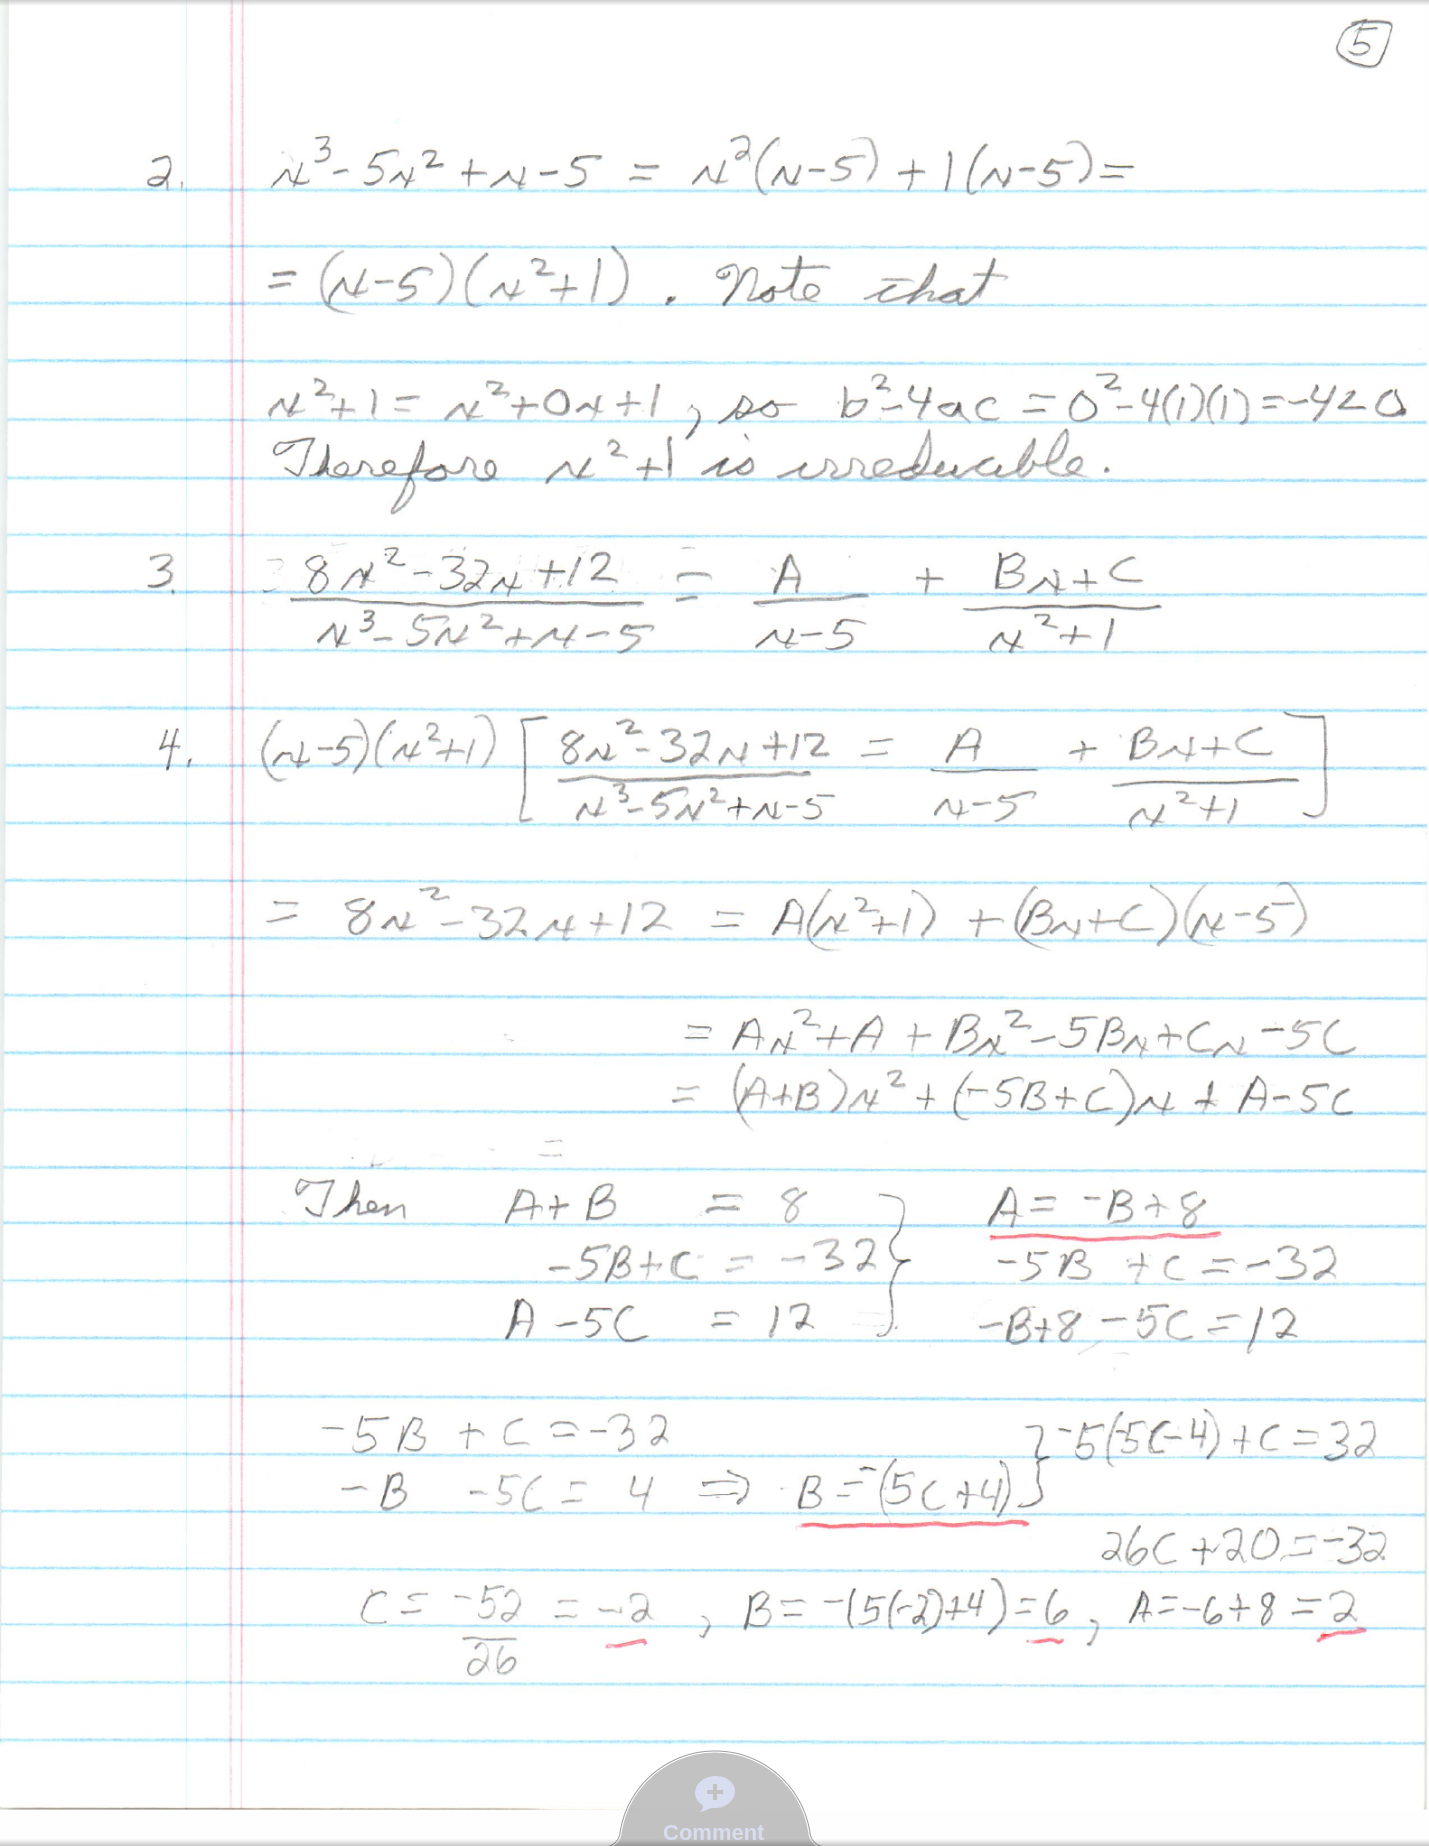 5
2. x³-5x²+x-5 = x²(x-5)+1(x-5)=
= (x-5)(x²+1). Note that
x²+1 = x²+0x+1, so b²-4ac = 0²-4(1)(1)=-4<0
Therefore x²+1 is irreducible.
3. (8x²-32x+12)/(x³-5x²+x-5) = A/(x-5) + (Bx+C)/(x²+1)
4. (x-5)(x²+1) [ (8x²-32x+12)/(x³-5x²+x-5) = A/(x-5) + (Bx+C)/(x²+1) ]
= 8x²-32x+12 = A(x²+1) + (Bx+C)(x-5)
= Ax²+A + Bx²-5Bx+Cx-5C
= (A+B)x² + (-5B+C)x + A-5C
Then A+B = 8 } A = -B+8
-5B+C = -32 -5B + C = -32
A-5C = 12 -B+8-5C=12
-5B + C = -32 } -5(-5C-4)+C=32
-B -5C = 4 ⇒ B = -(5C+4)
26C+20=-32
C = -52/26 = -2, B = -(5(-2)+4)=6, A=-6+8=2
Comment